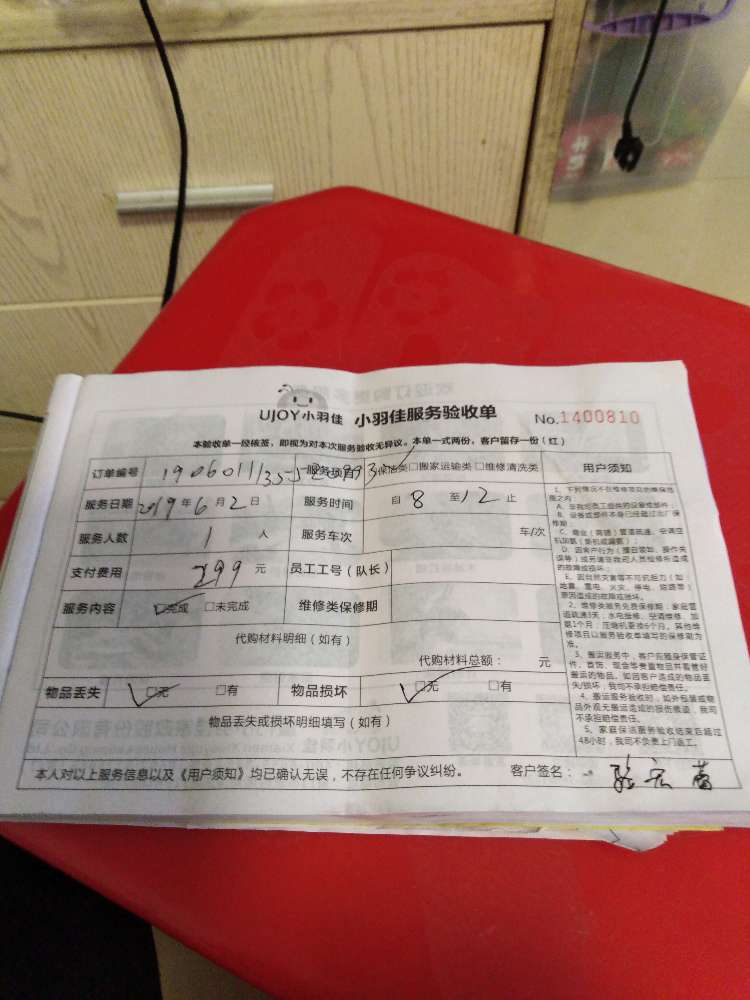 UJOY小羽佳 小羽佳服务验收单 No.1400810
本验收单一经核签，即视为对本次服务验收无异议。本单一式两份，客户留存一份（红）
订单编号 服务项目 保洁类□搬家运输类□维修清洗类 用户须知
服务日期 2019年6月2日 服务时间 自8至12止
服务人数 1人 服务车次 车/次
支付费用 299元 员工工号（队长）
服务内容 □完成 □未完成 维修类保修期
代购材料明细（如有）
代购材料总额： 元
物品丢失 □无 □有 物品损坏 □无 □有
物品丢失或损坏明细填写（如有）
本人对以上服务信息以及《用户须知》均已确认无误，不存在任何争议纠纷。 客户签名：
1、下列情况不在维修项目的维保范
围之内：
A、非我司员工提供的设备或部件；
B、设备或部件本身已经超过出厂保
修期；
C、商业（商铺）管道疏通、空调空
机加氟（新机或漏氟）；
D、因客户行为（擅自领卸、操作失
误等）或另请非我司人员检修所造成
的故障或损坏；
E、因自然灾害等不可抗拒力（如：
地震、雷电、火灾、停电、短路等）
原因造成的故障或损坏。
2、维修类服务免费保修期：家庭管
道疏通3天，水电维修、空调维修、加
氟1个月；压缩机更换6个月。其他维
修项目以服务验收单填写的保修期为
准。
3、搬运服务中，客户应随身保管证
件、首饰、现金等贵重物品并看管好
搬运的物品。如因客户造成的物品丢
失/损坏，我司不承担赔偿责任。
4、搬运服务验收时，如外包装或物
品外观无搬运造成的损伤痕迹，我司
不承担赔偿责任。
5、家庭保洁服务验收结束后超过
48小时，我司不负责上门返工。